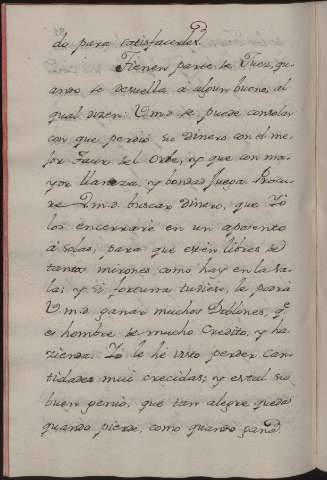 do para satisfacerles.
Tienen parte de Juez, qu-
ando se desuella a algun bueno, al
qual dizen: Vmd se puede consolar
con que perdio su dinero con el me-
jor Taur del Orbe, y que con ma-
yor llaneza, y bondad Juega. Procu-
re Vmd. buscar dinero, que Yo
los encerraré en un aposento
á solas, para que estén libres de
tantos mirones como hay en la sa-
la; y si fortuna tubiere, le podrá
Vmd. ganar muchos Doblones, qe.
es hombre de mucho credito, y ha-
zienda. Yo le he visto perder can-
tidades mui crecidas; y es tal su
buen genio, que tan alegre queda
quando pierde, como quando gana.